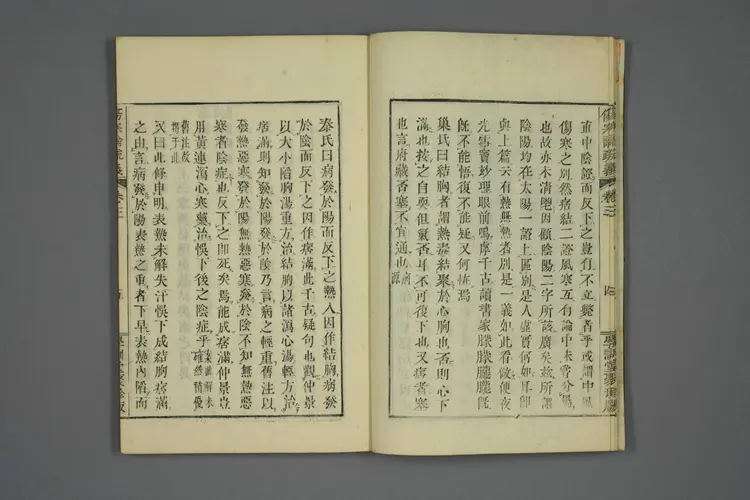 直中陰經而反下之豈有不立斃者乎或謂中風
傷寒之別然痞結二證風寒互有論中未嘗分屬
也故亦未清晰因顧陰陽二字所該廣矣茲所謂
陰陽均在太陽一證上區別是人虛實何如耳即
與上篇云有熱無熱者別是一義如此看做便夜
光雪竇妙理眼前嗚庫千古讀書家朦朦朧朧既
既不能悟復不能疑又何怪焉
巢氏曰結胸者謂熱毒結聚於心胸也否則心下
滿也按之自耎但氣否耳不可復下也又痞者塞
也言府藏否塞不宣通也
秦氏曰病發於陽而反下之熱入因作結胸病發
於陰而反下之因作痞滿此千古疑句也觀仲景
以大小陷胸湯重方治結胸以諸瀉心湯輕方治
痞滿則知發於陽發於陰乃言病之輕重舊注以
發熱惡寒發於陽無熱惡寒發於陰不知無熱惡
寒者陰症也反下之即死矣焉能成痞滿仲景豈
用黃連瀉心寒藥治悞下後之陰症乎
又曰此條申明表熱未解失汗悞下成結胸痞滿
之由言病發於陽表熱之重者下早表熱內陷而